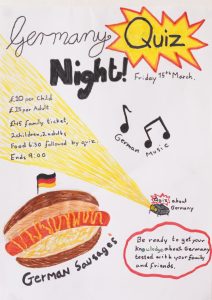 Germany Quiz
Night!
Friday 15th March.
£20 per Child
£25 per Adult
£45 family ticket,
2children,2adults,
Food 6:30 followed by quiz.
Ends 9:00
German Music
Quiz about
Germany
German Sausages
Be ready to get your
knowledge about Germany
tested with your family
and friends.